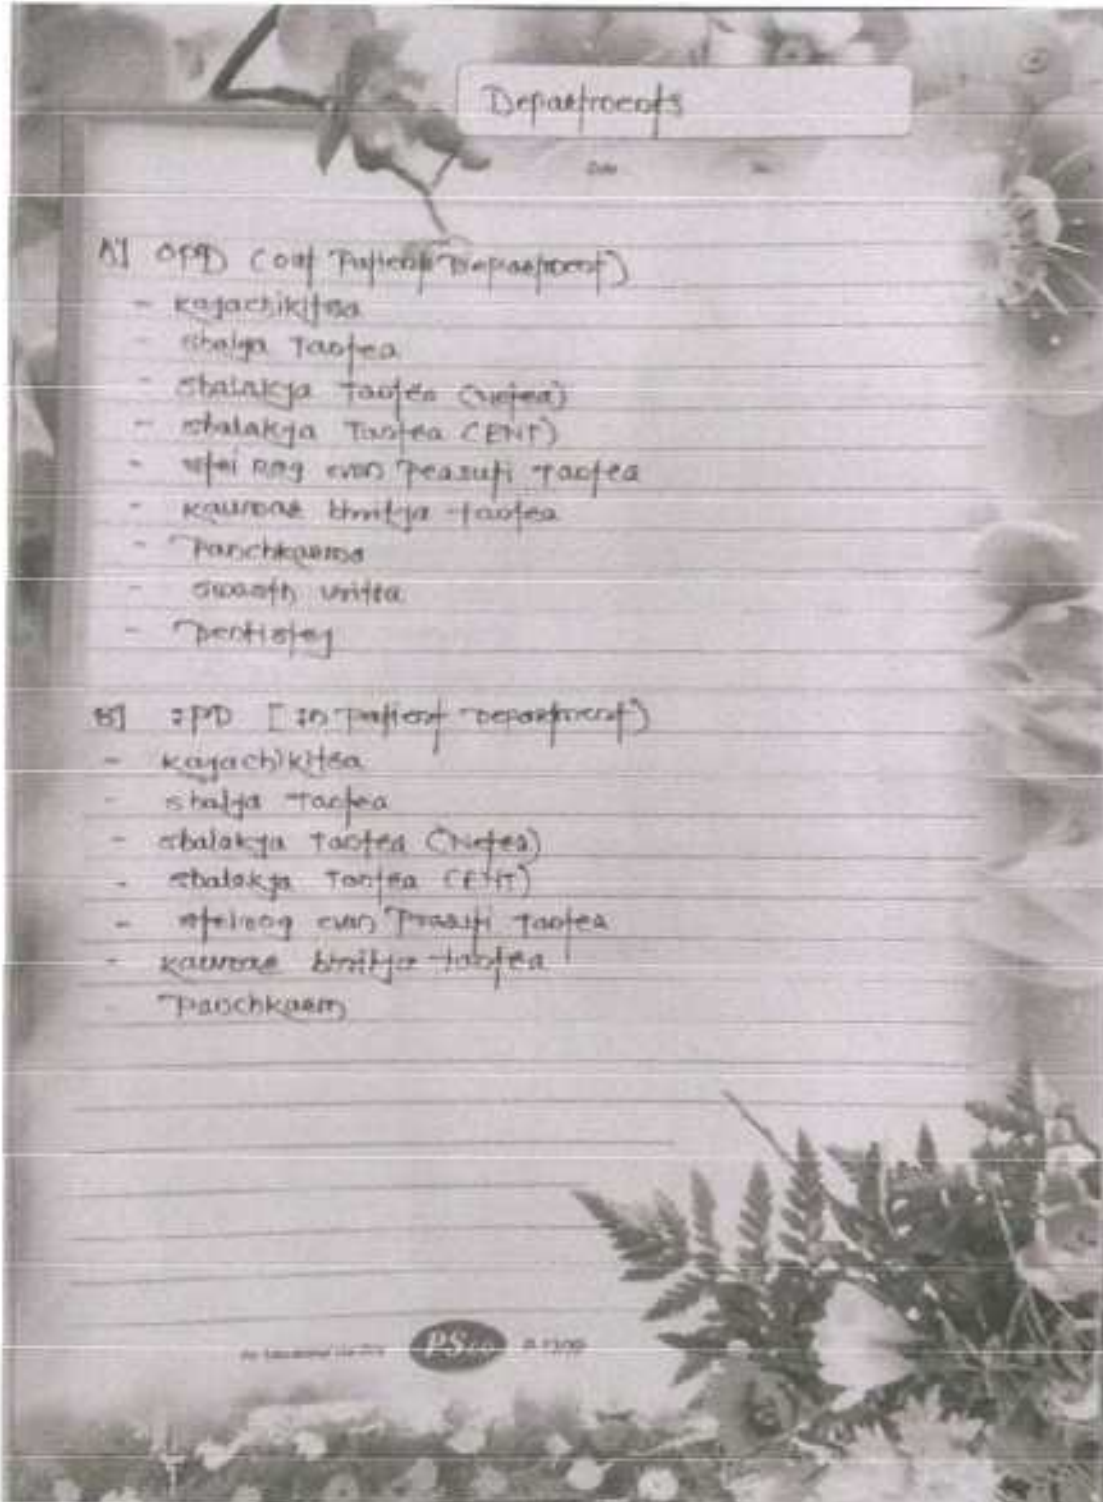 Departments
Date
A] OPD (Out Patient Department)
- Kayachikitsa
- Shalya Tantra
- Shalakya Tantra (Netra)
- Shalakya Tantra (ENT)
- Stri Rog evam Prasuti Tantra
- Kaumar bhritya tantra
- Panchkarma
- Swasth vritta
- Dentistry
B] IPD [In patient Department)
- Kayachikitsa
- Shalya Tantra
- Shalakya Tantra (Netra)
- Shalakya Tantra (ENT)
- Stri rog evam Prasuti Tantra
- Kaumar bhritya tantra
- Panchkarm
PS